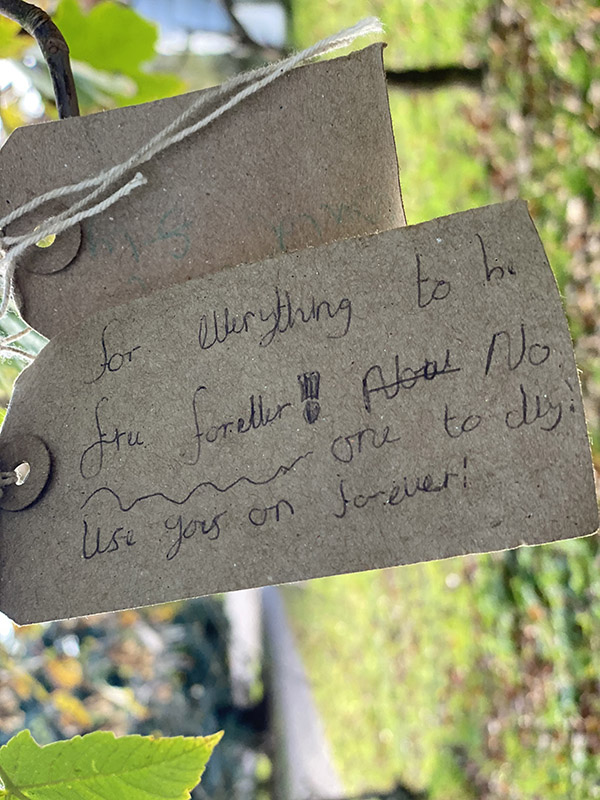 for everything to be
free foreller!! Now No
one to diy!
Use gows on forever!